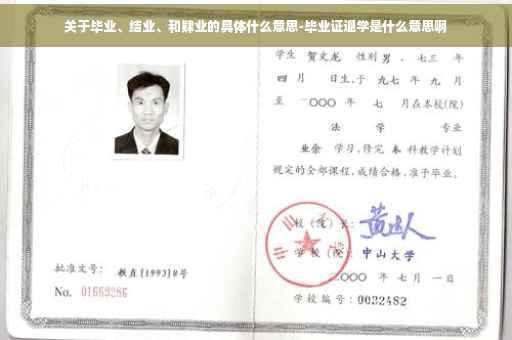 关于毕业、结业、和肄业的具体什么意思-毕业证退学是什么意思啊
学生 贺文龙 性别 男 、七三 年
四 月 日生,于 九七 年 九 月
至 二〇〇〇 年 七 月在本校(院)
法 学 专业
业余 学习,修完 本 科教学计划
规定的全部课程,成绩合格,准予毕业。
校(院)长:
学校(院): 中山大学
二〇〇〇 年 七 月 一 日
学校编号: 0032482
批准文号: 教直[1993]8号
No. 01669286